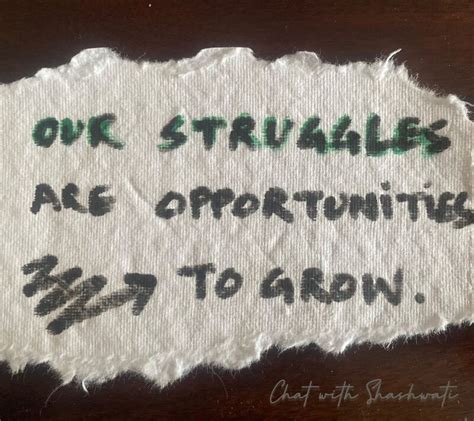 OUR STRUGGLES
ARE OPPORTUNITIES
TO GROW.
Chat with Shashwati